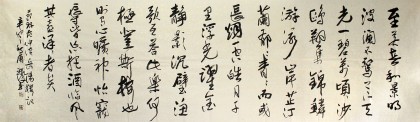 至若春和景明
波瀾不驚上下天
光一碧萬頃沙
鷗翔集錦鱗
游泳岸芷汀
蘭郁郁青青而或
長煙一空皓月千
里浮光躍金
靜影沉璧漁
歌互答此樂何
極登斯樓也
則有心曠神怡寵
辱偕忘把酒臨風
其喜洋洋者矣